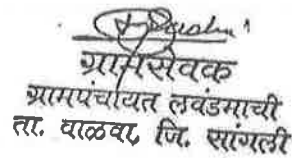 ग्रामसेवक
ग्रामपंचायत लवंडमाची
ता. वाळवा, जि. सांगली